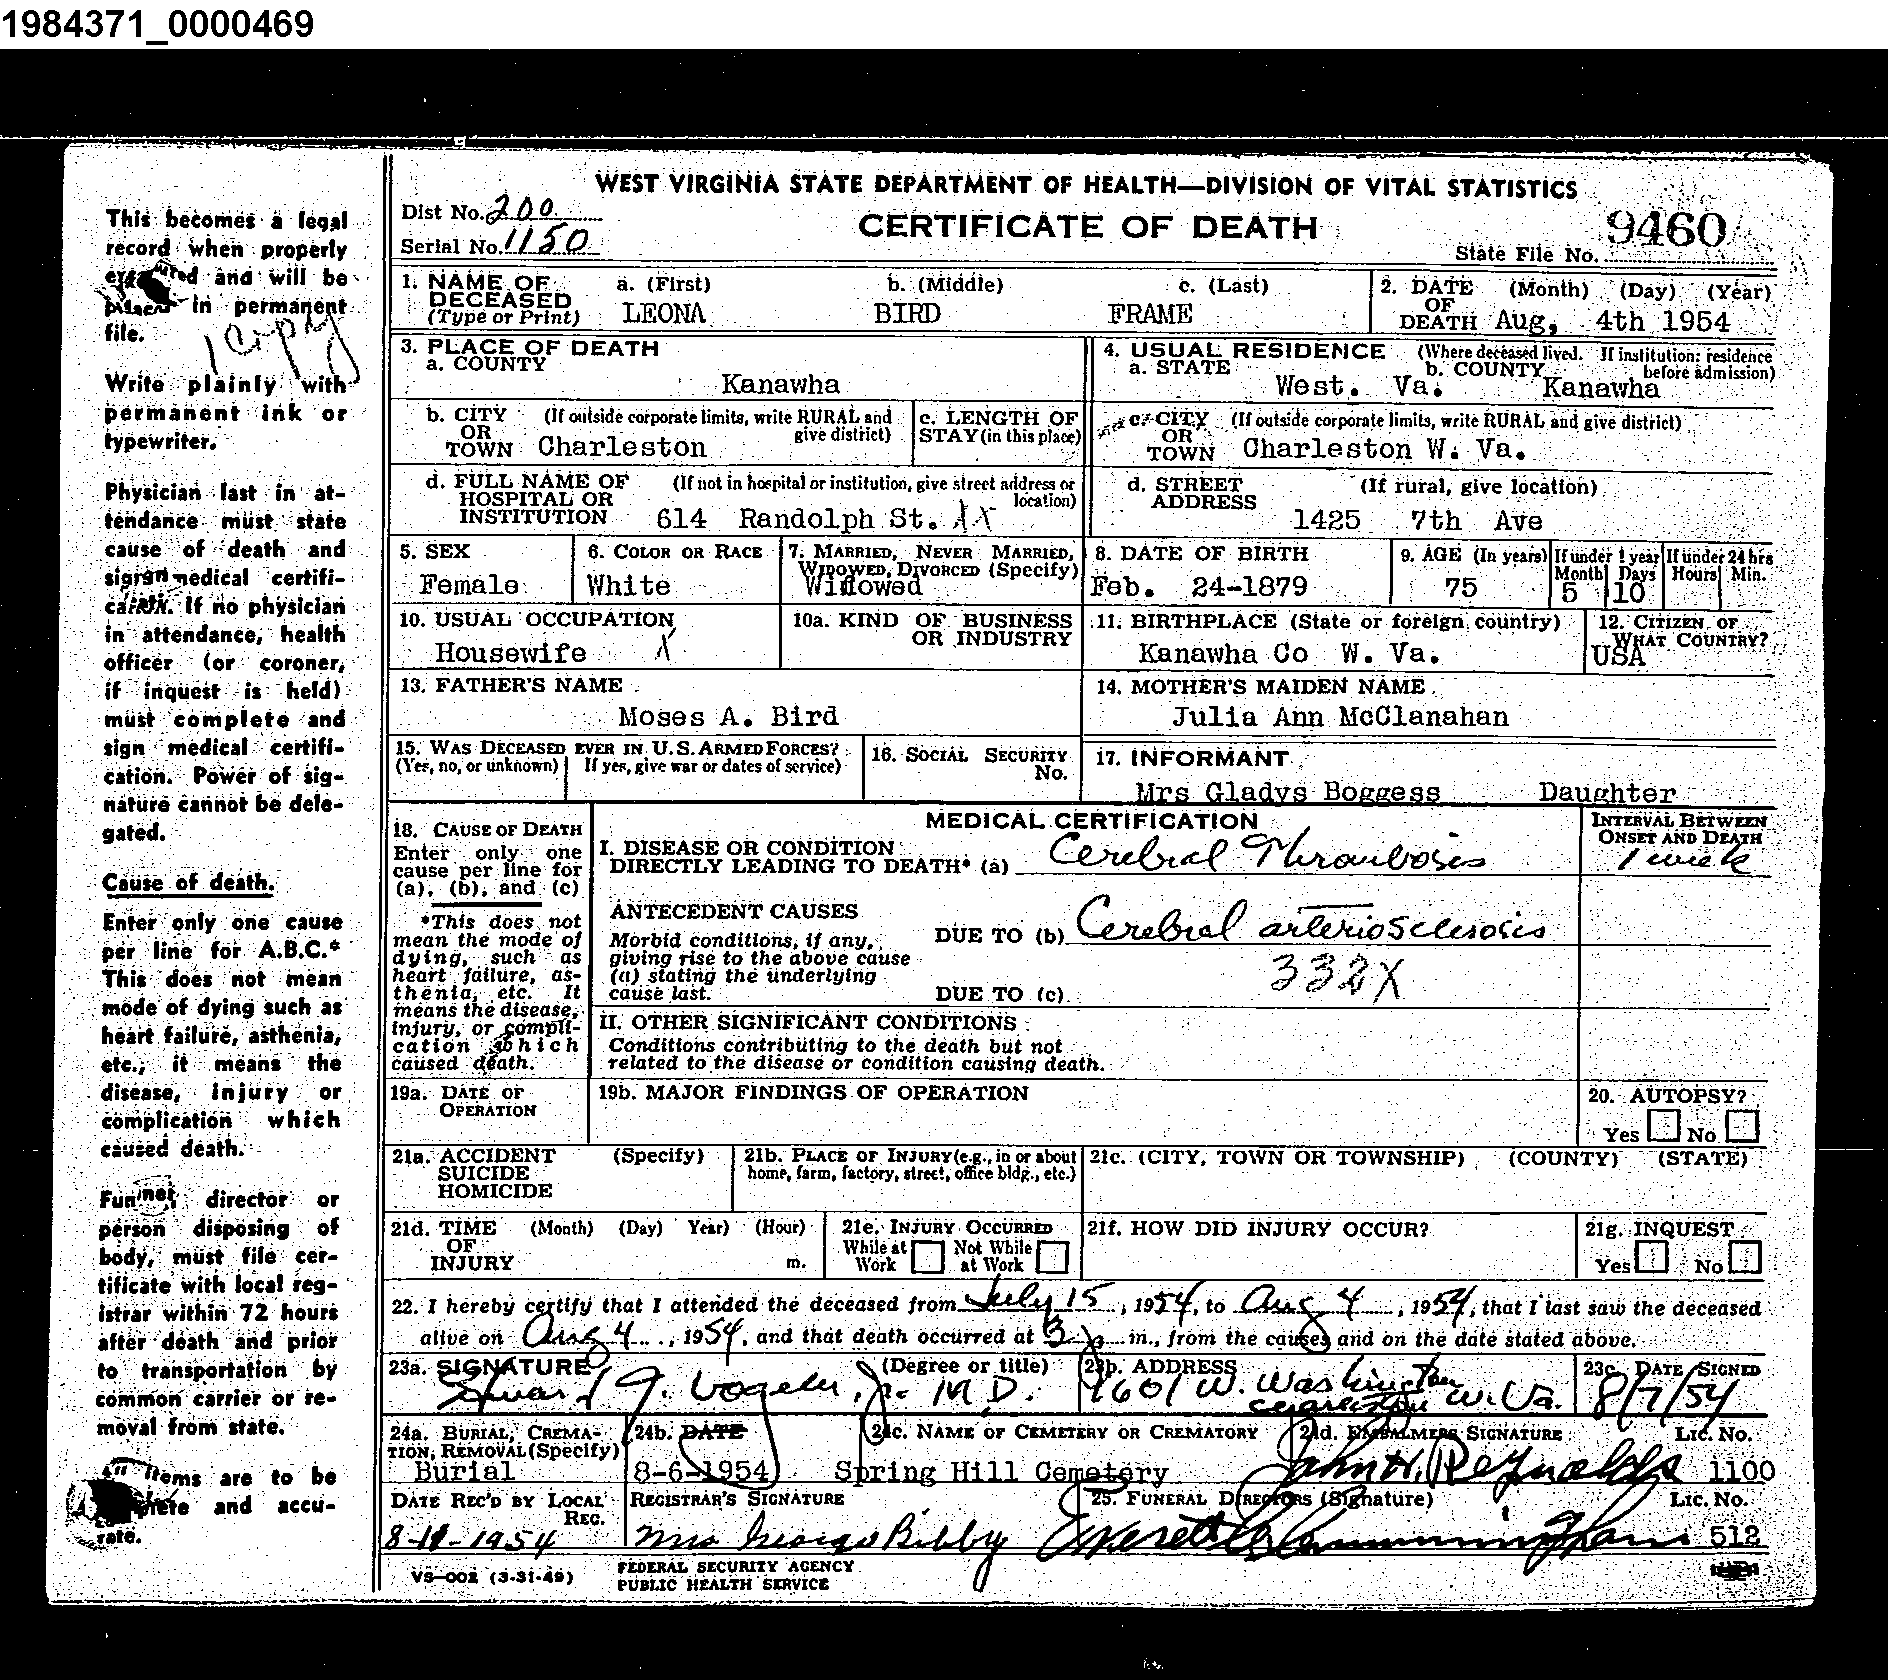 1984371_0000469
This becomes a legal
record when properly
and will be
placed in permanent
file.
1 Copy
Write plainly with
permanent ink or
typewriter.
Physician last in at-
tendance must state
cause of death and
sign medical certifi-
If no physician
in attendance, health
officer (or coroner,
if inquest is held)
must complete and
sign medical certifi-
cation. Power of sig-
nature cannot be dele-
gated.
Cause of death.
Enter only one cause
per line for A.B.C.*
This does not mean
mode of dying such as
heart failure, asthenia,
etc., it means the
disease, injury or
complication which
caused death.
director or
person disposing of
body, must file cer-
tificate with local reg-
istrar within 72 hours
after death and prior
to transportation by
common carrier or re-
moval from state.
items are to be
and accu-
rate.
WEST VIRGINIA STATE DEPARTMENT OF HEALTH—DIVISION OF VITAL STATISTICS
Dist No. 200
CERTIFICATE OF DEATH
Serial No. 1150
State File No. 9460
1. NAME OF DECEASED (Type or Print) a. (First) b. (Middle) c. (Last)
LEONA BIRD FRAME
2. DATE OF DEATH (Month) (Day) (Year)
Aug, 4th 1954
3. PLACE OF DEATH
a. COUNTY
Kanawha
4. USUAL RESIDENCE (Where deceased lived. If institution: residence before admission)
a. STATE b. COUNTY
West. Va. Kanawha
b. CITY OR TOWN (If outside corporate limits, write RURAL and give district)
Charleston
c. LENGTH OF STAY (in this place)
c. CITY OR TOWN (If outside corporate limits, write RURAL and give district)
Charleston W. Va.
d. FULL NAME OF HOSPITAL OR INSTITUTION (If not in hospital or institution, give street address or location)
614 Randolph St. XX
d. STREET ADDRESS (If rural, give location)
1425 7th Ave
5. SEX
Female
6. COLOR OR RACE
White
7. MARRIED, NEVER MARRIED, WIDOWED, DIVORCED (Specify)
Widowed
8. DATE OF BIRTH
Feb. 24-1879
9. AGE (In years) If under 1 year If under 24 hrs
Month Days Hours Min.
75 5 10
10. USUAL OCCUPATION
Housewife X
10a. KIND OF BUSINESS OR INDUSTRY
11. BIRTHPLACE (State or foreign country)
Kanawha Co W. Va.
12. CITIZEN OF WHAT COUNTRY?
USA
13. FATHER'S NAME
Moses A. Bird
14. MOTHER'S MAIDEN NAME
Julia Ann McClanahan
15. WAS DECEASED EVER IN U.S. ARMED FORCES?
(Yes, no, or unknown) If yes, give war or dates of service)
16. SOCIAL SECURITY No.
17. INFORMANT
Mrs Gladys Boggess Daughter
18. CAUSE OF DEATH
Enter only one
cause per line for
(a), (b), and (c)
*This does not
mean the mode of
dying, such as
heart failure, as-
thenia, etc. It
means the disease,
injury, or compli-
cation which
caused death.
MEDICAL CERTIFICATION
INTERVAL BETWEEN ONSET AND DEATH
I. DISEASE OR CONDITION
DIRECTLY LEADING TO DEATH* (a) Cerebral Thrombosis 1 week
ANTECEDENT CAUSES
Morbid conditions, if any,
giving rise to the above cause
(a) stating the underlying
cause last.
DUE TO (b) Cerebral arteriosclerosis
332X
DUE TO (c)
II. OTHER SIGNIFICANT CONDITIONS
Conditions contributing to the death but not
related to the disease or condition causing death.
19a. DATE OF OPERATION
19b. MAJOR FINDINGS OF OPERATION
20. AUTOPSY?
Yes No
21a. ACCIDENT SUICIDE HOMICIDE (Specify)
21b. PLACE OF INJURY (e.g., in or about
home, farm, factory, street, office bldg., etc.)
21c. (CITY, TOWN OR TOWNSHIP) (COUNTY) (STATE)
21d. TIME OF INJURY (Month) (Day) Year) (Hour) m.
21e. INJURY OCCURRED
While at Work Not While at Work
21f. HOW DID INJURY OCCUR?
21g. INQUEST
Yes No
22. I hereby certify that I attended the deceased from July 15, 1954, to Aug 4, 1954, that I last saw the deceased
alive on Aug 4, 1954, and that death occurred at 3 p. m., from the causes and on the date stated above.
23a. SIGNATURE (Degree or title)
J. Vogeler, Jr. M.D.
23b. ADDRESS
1601 W. Washington
Charleston W. Va.
23c. DATE SIGNED
8/7/54
24a. BURIAL, CREMA-
TION, REMOVAL (Specify)
Burial
24b. DATE
8-6-1954
24c. NAME OF CEMETERY OR CREMATORY
Spring Hill Cemetery
24d. EMBALMERS SIGNATURE LIC. NO.
John H. Reynolds 1100
DATE REC'D BY LOCAL REG.
8-11-1954
REGISTRAR'S SIGNATURE
Mrs George Bibby
25. FUNERAL DIRECTORS (Signature) LIC. NO.
Everett Cunningham 512
VS-002 (3-31-49)
FEDERAL SECURITY AGENCY
PUBLIC HEALTH SERVICE